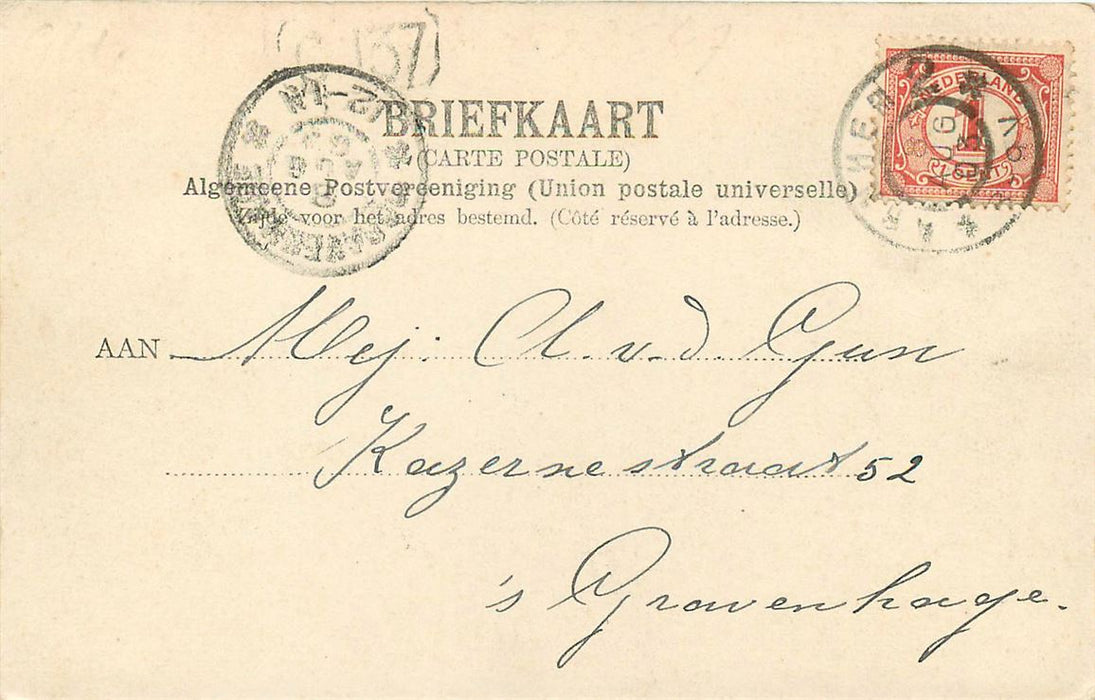 C 37
BRIEFKAART
(CARTE POSTALE)
Algemeene Postvereeniging (Union postale universelle)
Zijde voor het adres bestemd. (Côté réservé à l'adresse.)
12-1N
AUG
NEDERLAND
1
CENT
ARNHEM
AUG
AAN Mej. C. v. d. Gun
Kazernestraat 52
's Gravenhage.